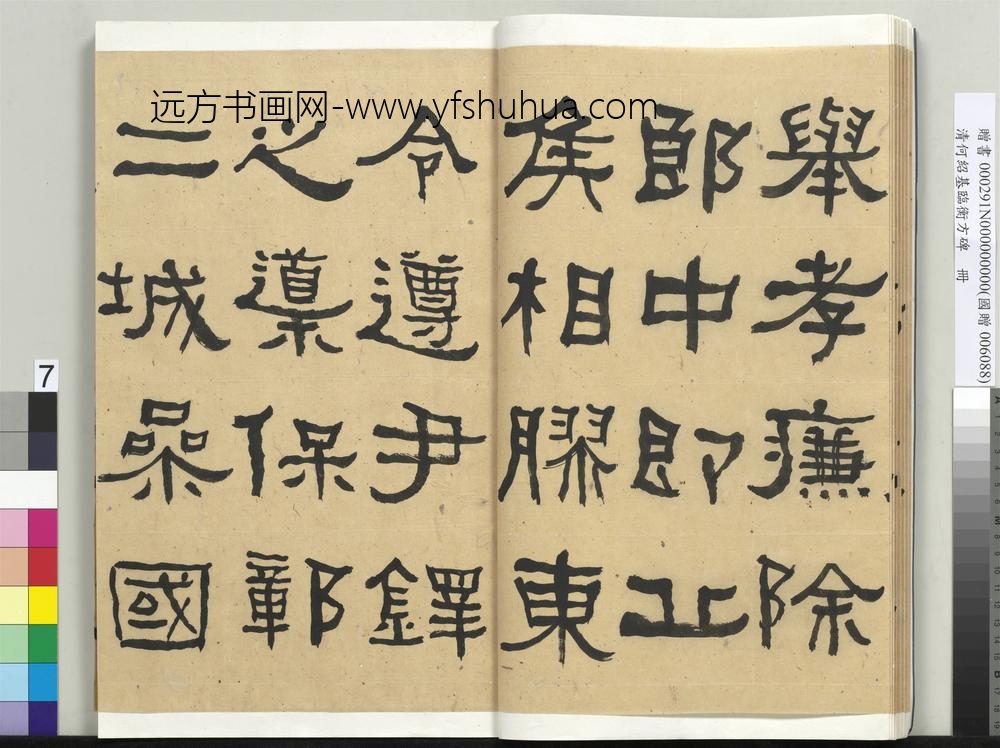 远方书画网-www.yfshuhua.com
舉孝廉除
郎中即丘
侯相膠東
令遵尹鐸
之導保鄣
二城參國
贈書 000291N000000000(國贈 006088)
清何紹基臨衡方碑 冊
7